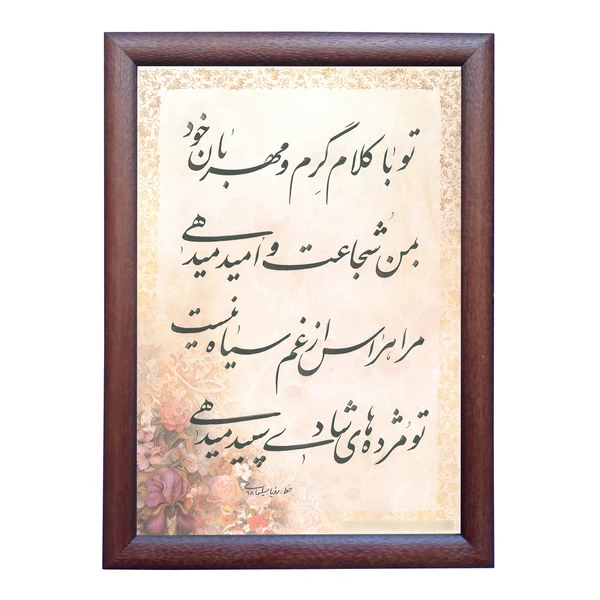 تو با کلام گرم و مهربان خود
بمن شجاعت و امید میدهی
مرا هراس از غم سیاه نیست
تو مژده های شادی سپید میدهی
خط: رؤیا ۹۸